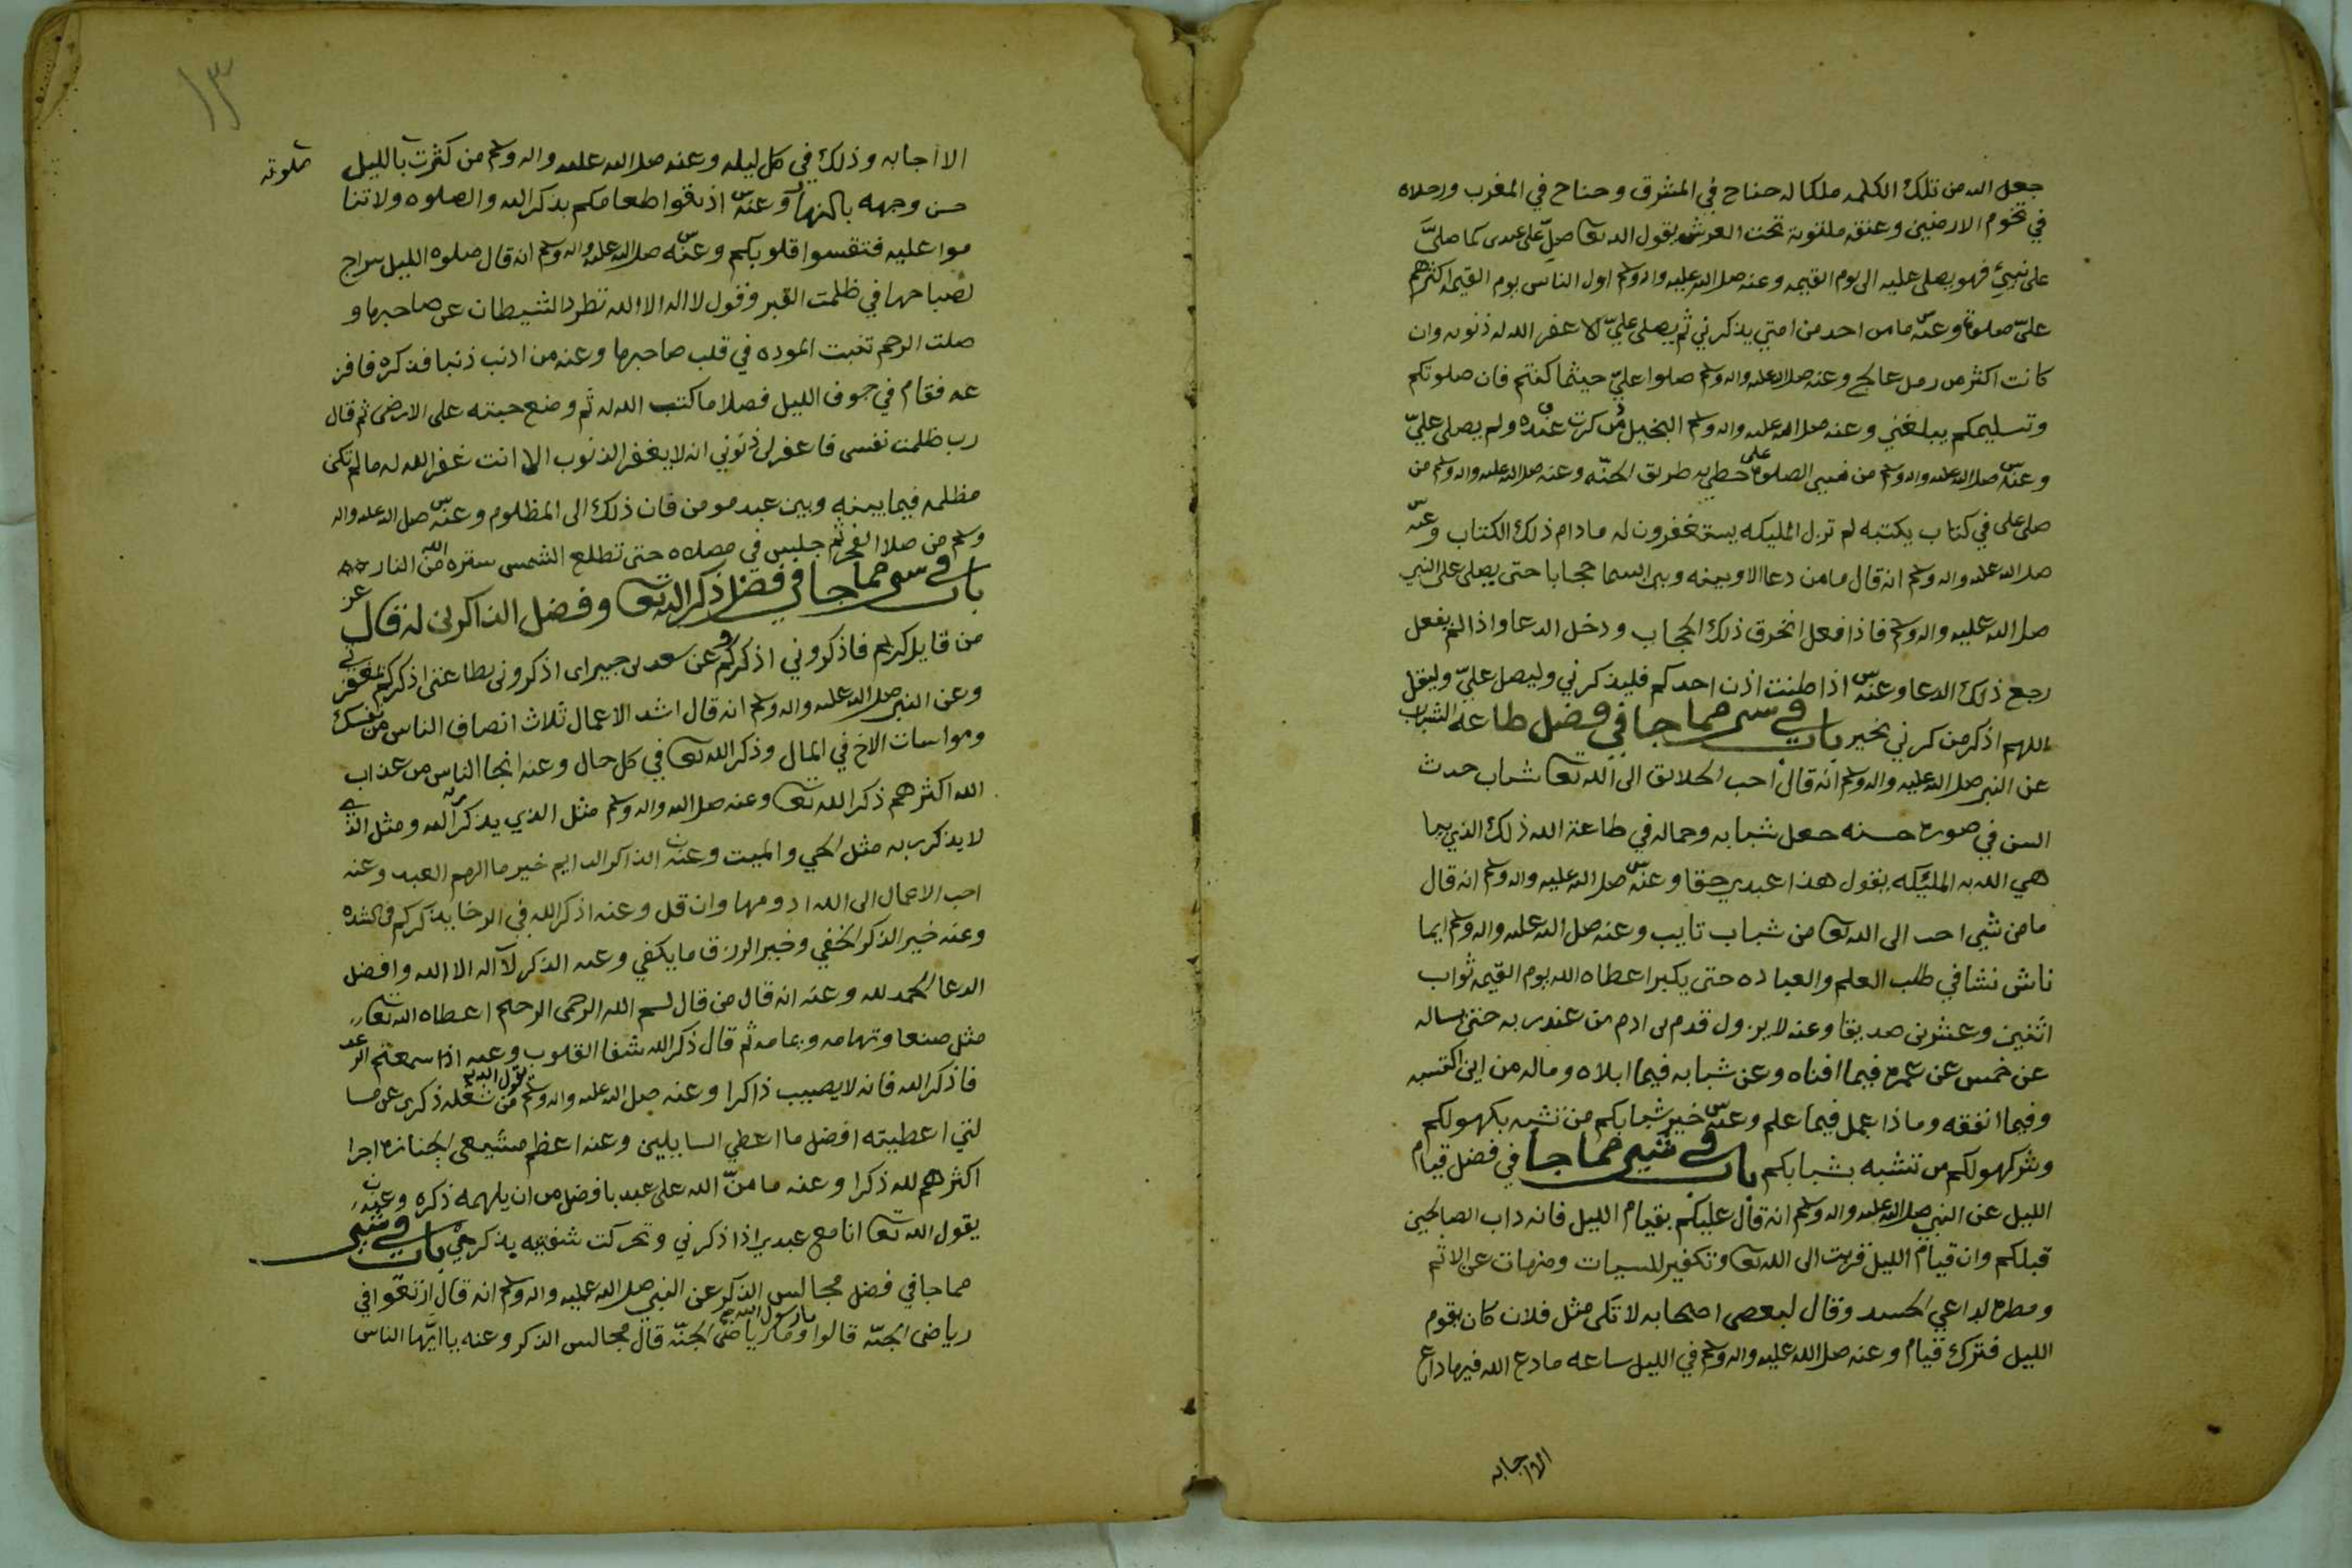 جعل الله من تلك الكلمه ملكا له جناح في المشرق وجناح في المغرب ورجلاه
في تخوم الارضين وعنقه ملتوية تحت العرش يقول الله تعا صلّ على عبدى كما صلىّ
على نبيّي فهو يصلى عليه الى يوم القيمه وعنه صلى الله عليه واله وسلم اولى الناس يوم القيمه اكثرهم
علىّ صلوة وعنه ما من احد من امتي يذكرني ثم يصلى عليّ الا غفر الله له ذنوبه وان
كانت اكثر من رمل عالج وعنه صلى الله عليه واله وسلم صلوا عليّ حيثما كنتم فان صلوتكم
وتسليمكم يبلغني وعنه صلى الله عليه واله وسلم البخيل من ذكرت عنده ولم يصلى عليّ
وعنه صلى الله عليه واله وسلم من نسى الصلوة على خطي به طريق الجنّه وعنه صلى الله عليه واله وسلم من
صلى على في كتاب يكتبه لم تزل المليكه يستغفرون له مادام ذلك الكتاب وعنه
صلى الله عليه واله وسلم انه قال ما من دعا الا وبينه وبين السما حجابا حتى يصلى على النبي
صلى الله عليه واله وسلم فاذا فعل انخرق ذلك الحجاب ودخل الدعا واذا لم يفعل
رجع ذلك الدعا وعنه اذا طنت اذن احدكم فليذكرني وليصل عليّ وليقل
اللهم اذكر من ذكرني بخير باب في شى مما جا في فضل طاعه الشباب
عن النبي صلى الله عليه واله وسلم انه قال احب الخلايق الى الله تعا شاب حدث
السن في صورة حسنه جعل شبابه وجماله في طاعة الله ذلك الذي يبا
هي الله به المليكه يقول هذا عبدي حقا وعنه صلى الله عليه واله وسلم انه قال
ما من شي احب الى الله تعا من شباب تايب وعنه صلى الله عليه واله وسلم ايما
ناش نشا في طلب العلم والعباده حتى يكبر اعطاه الله يوم القيمه ثواب
اثنين وعشرين صديقا وعنه لا يزول قدم بن ادم من عند ربه حتى يساله
عن خمس عن عمره فيما افناه وعن شبابه فيما ابلاه وماله من اين اكتسبه
وفيما انفقه وماذا عمل فيما علم وعنه خير شبابكم من تشبه بكهولكم
وشر كهولكم من تشبه بشبابكم باب في شيى مما جا في فضل قيام
الليل عن النبي صلى الله عليه واله وسلم انه قال عليكم بقيام الليل فانه داب الصالحين
قبلكم وان قيام الليل قربت الى الله تعا وتكفير للسيات ومنهات عن الاثم
ومطرده لداعي الحسد وقال لبعض اصحابه لا تكن مثل فلان كان يقوم
الليل فترك قيام وعنه صلى الله عليه واله وسلم في الليل ساعه ما دع الله فيها داع
الا اجابه
١٣
الا اجابه وذلك في كل ليله وعنه صلى الله عليه واله وسلم من كثرت بالليل
صلوته
حسن وجهه بالنهار وعنه اذيقوا طعامكم بذكر الله والصلوه ولا تنا
موا عليه فتقسوا قلوبكم وعنه صلى الله عليه واله وسلم انه قال صلوه الليل سراج
لصباحها في ظلمت القبر وقول لا اله الا الله تطرد الشيطان عن صاحبها و
صلت الرحم تثبت الموده في قلب صاحبها وعنه من اذنب ذنبا فذكره فافز
عه فقام في جوف الليل فصلا ما كتب الله له ثم وضع جبته على الارض ثم قال
رب ظلمت نفسى فاغفر لى ذنوبي انه لا يغفر الذنوب الا انت غفر الله له ما لم تكن
مظلمه فيما بينه وبين عبد مومن فان ذلك الى المظلوم وعنه صلى الله عليه واله
وسلم من صلا الفجر ثم جلس في مصلاه حتى تطلع الشمس ستره الله من النار
باب في شى مما جا في فضل ذكر الله تعا وفضل الذاكرين له قال عز
من قايل كريم فاذكروني اذكركم وعن سعد بن جبير اى اذكرونى بطاعتى اذكركم بمغفرتي
وعن النبي صلى الله عليه واله وسلم انه قال اشد الاعمال ثلاث انصاف الناس من نفسك
ومواسات الاخ في المال وذكر الله تعا في كل حال وعنه انجا الناس من عذاب
الله اكثرهم ذكرا لله تعا وعنه صلى الله واله وسلم مثل الذي يذكر الله ومثل الذي
لا يذكر ربه مثل الحي والميت وعنه الذاكر الدايم خير ما الهم العبد وعنه
احب الاعمال الى الله ادومها وان قل وعنه اذكر الله في الرخا يذكركم في الشده
وعنه خير الذكر الخفي وخير الرزق ما يكفي وعنه الذكر لآ اله الا الله وافضل
الدعا الحمد لله وعنه انه قال من قال بسم الله الرحمن الرحيم اعطاه الله تعا
مثل صنعا وتهامه ويمامه ثم قال ذكر الله شفا القلوب وعنه اذا سمعتم الرعد
فاذكر الله فانه لا يصيب ذاكرا وعنه صلى الله عليه واله وسلم يقول الله من شغله ذكرى عن مسا
لتي اعطيته افضل ما اعطي السايلين وعنه اعظم مشيعى الجنازه اجرا
اكثرهم لله ذكرا وعنه ما منّ الله على عبد بافضل من ان يلهمه ذكره وعنه
يقول الله تعا انا مع عبدي اذا ذكرني وتحركت شفتيه بذكري باب في شيى
مما جا في فضل مجالس الذكر عن النبي صلى الله عليه واله وسلم انه قال ارتعوا في
رياض الجنّه قالوا يا رسول الله وما رياض الجنّه قال مجالس الذكر وعنه يا ايّها الناس